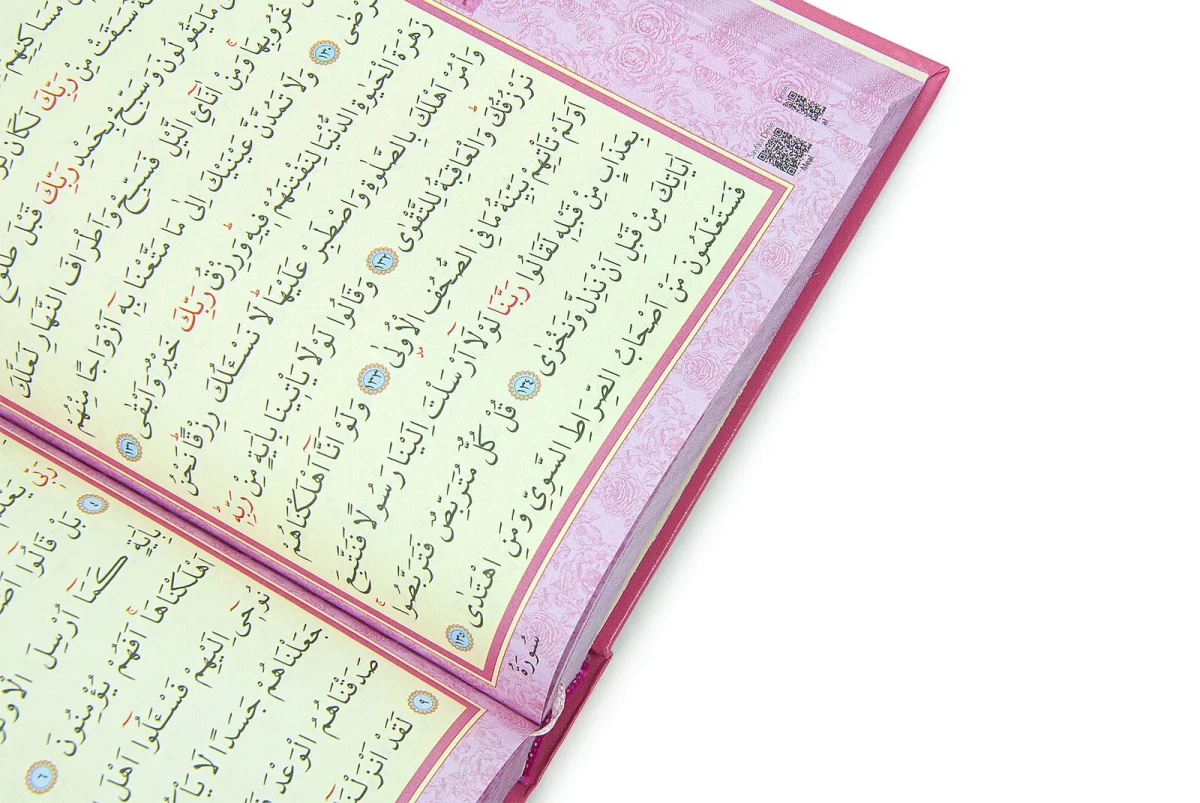 مَسَاكِنِهِمْ
سَبَقَتْ مِنْ رَبِّكَ لَكَانَ
مَا يَقُولُونَ وَسَبِّحْ بِحَمْدِ رَبِّكَ قَبْلَ طُلُوعِ
غُرُوبِهَا وَمِنْ اٰنَٓائِ الَّيْلِ فَسَبِّحْ وَاَطْرَافَ النَّهَارِ لَعَلَّكَ
تَرْضٰى ١٣٠ وَلَا تَمُدَّنَّ عَيْنَيْكَ اِلٰى مَا مَتَّعْنَا بِهٖٓ اَزْوَاجًا مِنْهُمْ
زَهْرَةَ الْحَيٰوةِ الدُّنْيَا لِنَفْتِنَهُمْ فِيهِۜ وَرِزْقُ رَبِّكَ خَيْرٌ وَاَبْقٰى ١٣١
وَأْمُرْ اَهْلَكَ بِالصَّلٰوةِ وَاصْطَبِرْ عَلَيْهَاۜ لَا نَسْـَٔلُكَ رِزْقًاۜ نَحْنُ
نَرْزُقُكَۜ وَالْعَاقِبَةُ لِلتَّقْوٰى ١٣٢ وَقَالُوا لَوْلَا يَأْتِينَا بِاٰيَةٍ مِنْ رَبِّهٖۜ
اَوَلَمْ تَأْتِهِمْ بَيِّنَةُ مَا فِي الصُّحُفِ الْاُولٰى ١٣٣ وَلَوْ اَنَّٓا اَهْلَكْنَاهُمْ
بِعَذَابٍ مِنْ قَبْلِهٖ لَقَالُوا رَبَّنَا لَوْلَٓا اَرْسَلْتَ اِلَيْنَا رَسُولًا فَنَتَّبِعَ
اٰيَاتِكَ مِنْ قَبْلِ اَنْ نَذِلَّ وَنَخْزٰى ١٣٤ قُلْ كُلٌّ مُتَرَبِّصٌ فَتَرَبَّصُواۚ
فَسَتَعْلَمُونَ مَنْ اَصْحَابُ الصِّرَاطِ السَّوِيِّ وَمَنِ اهْتَدٰى ١٣٥
سُورَةُ
Sayfa Oku
Meal
رَبِّي يَعْلَمُ
٤ بَلْ قَالُٓوا
بِاٰيَةٍ كَمَٓا اُرْسِلَ الْاَوَّلُونَ
اَهْلَكْنَاهَاۚ اَفَهُمْ يُؤْمِنُونَ ٦
نُوحِٓي اِلَيْهِمْ فَسْـَٔلُٓوا اَهْلَ
جَعَلْنَاهُمْ جَسَدًا لَا
صَدَقْنَاهُمُ الْوَعْدَ
٩ لَقَدْ اَنْزَلْنَٓا